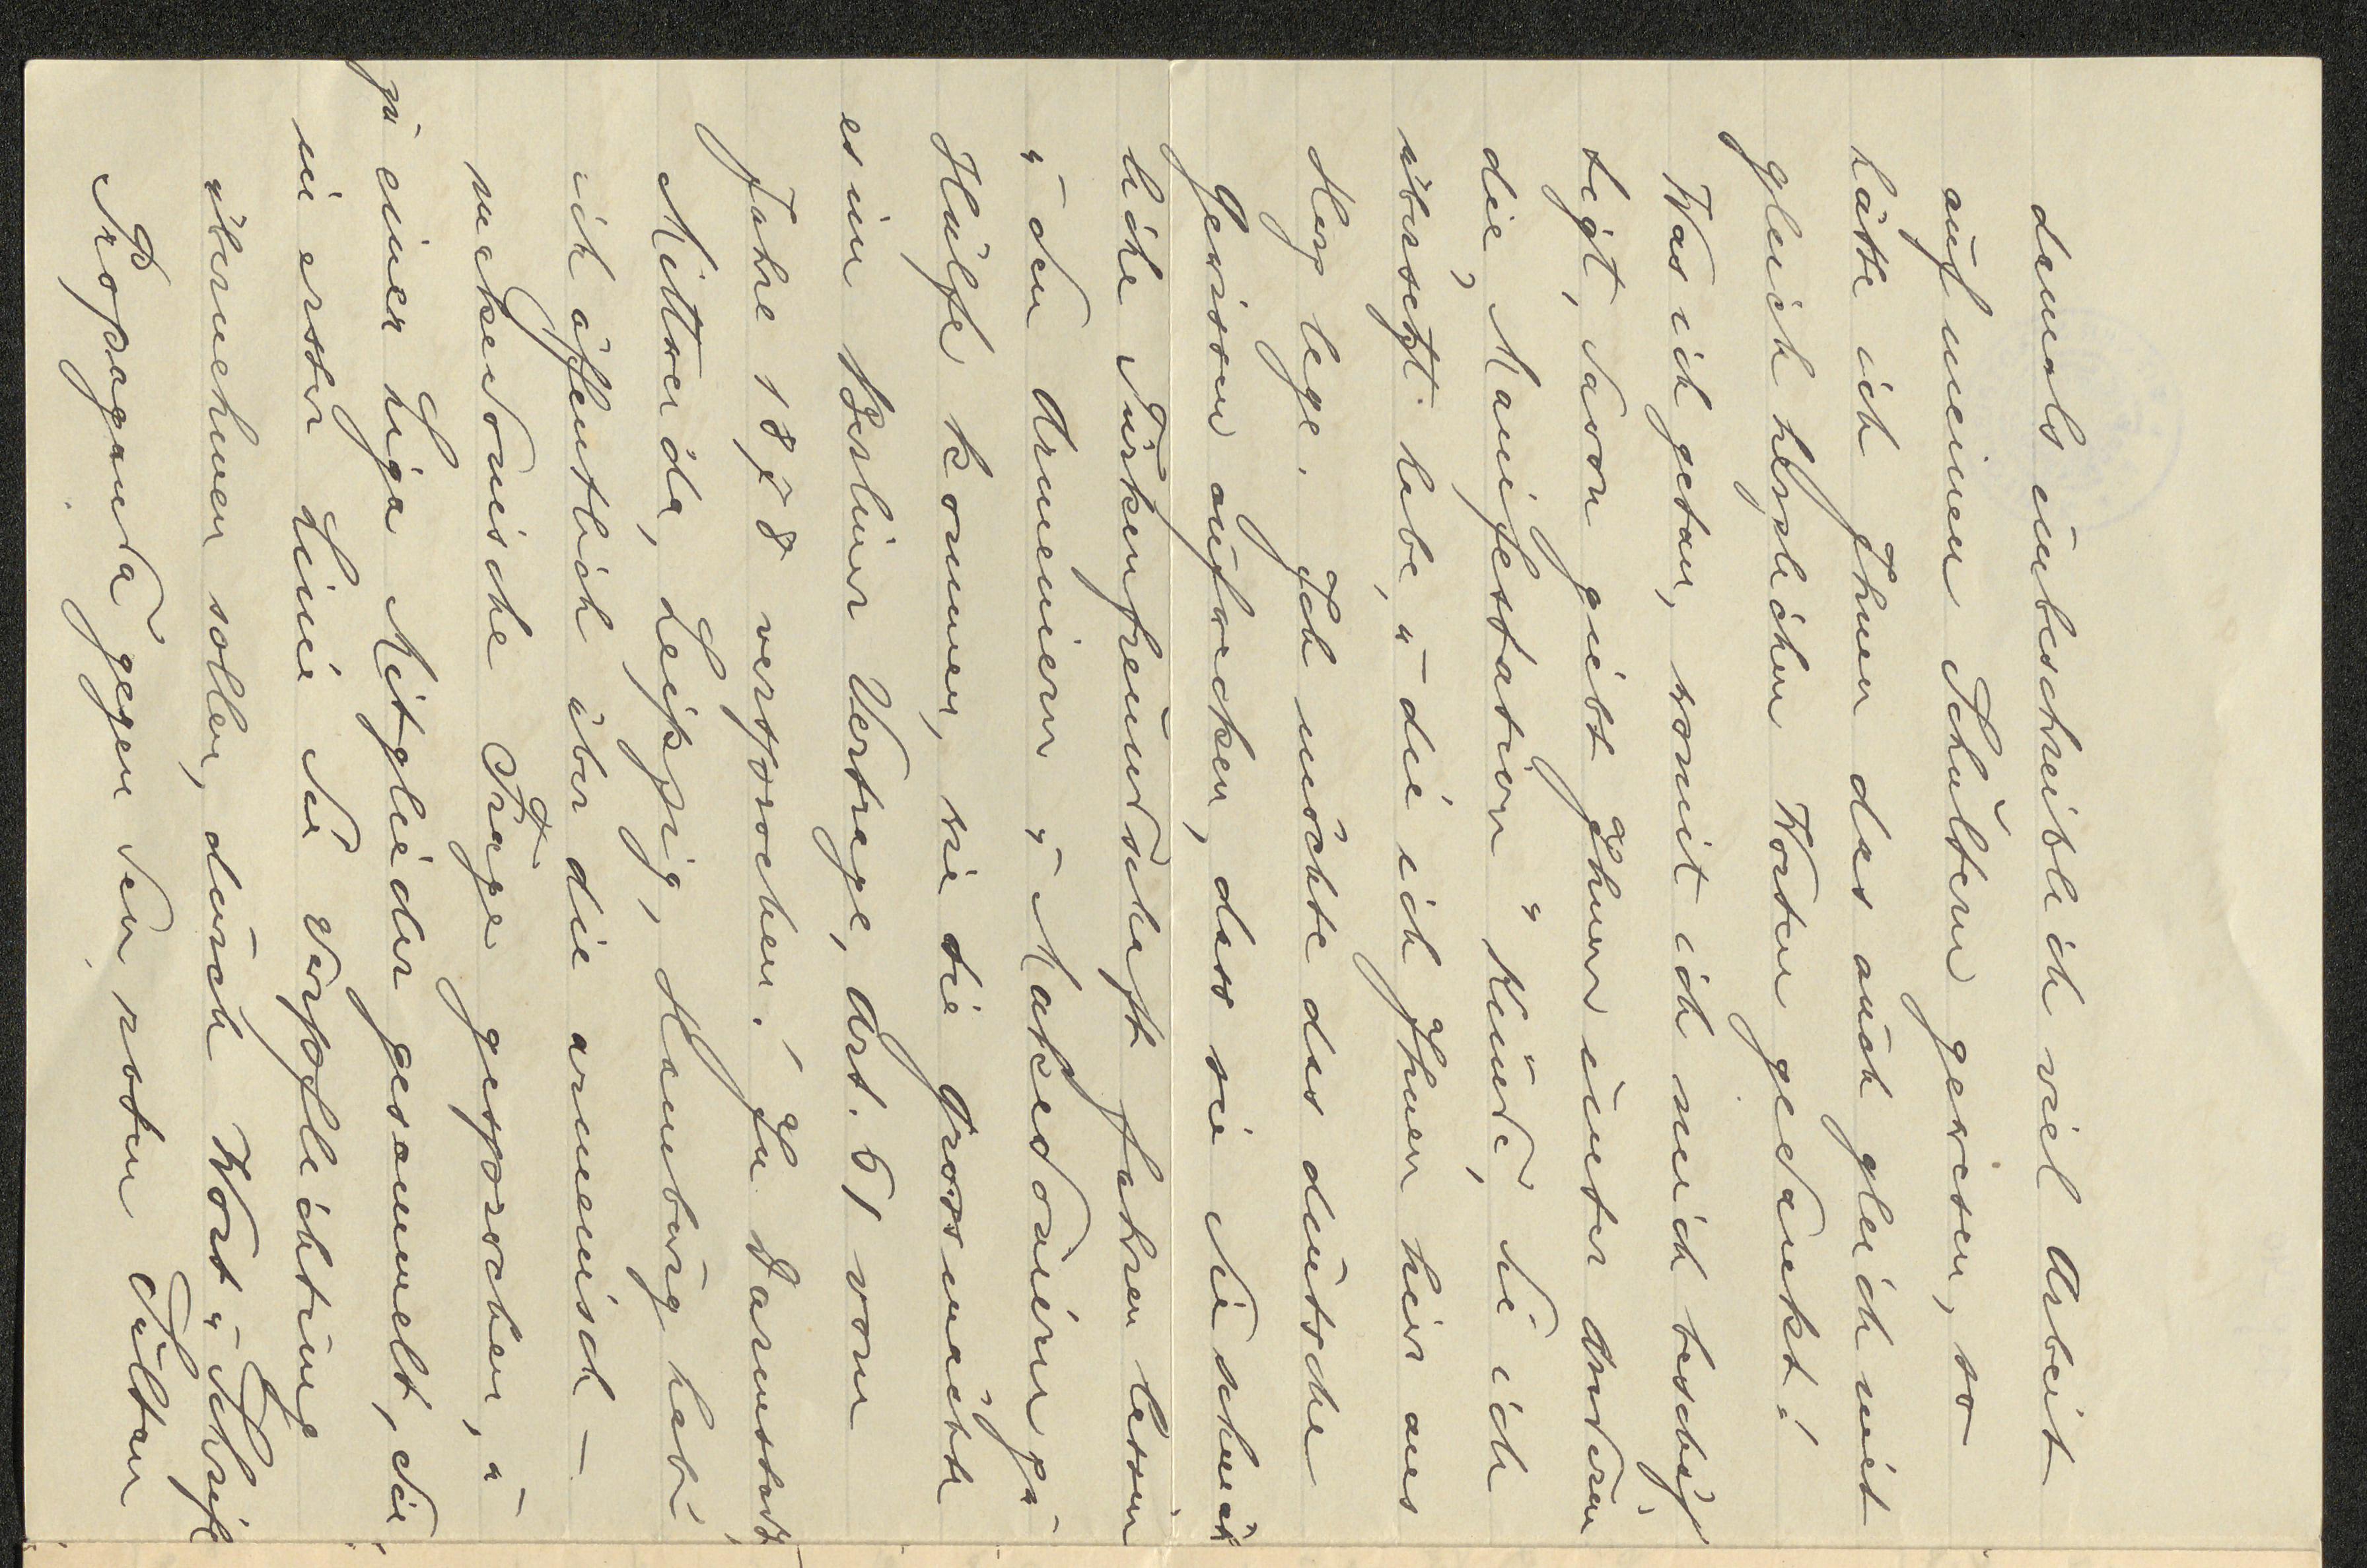 damals unbeschreiblich viel Arbeit
auf meinen Schultern gewesen, so
hätte ich Ihnen das auch gleich mit
gleich herzlichen Worten gedankt!
Was ich getan, womit ich mich beschäf
tigt, davon giebt Ihnen unter anderem
die „Manifestation" Kunde, die ich
übersetzt habe, u die ich Ihnen hier ans
Herz lege. Ich möchte das deutsche
Gewissen aufwecken, dass sie die schmäh
liche Türkenfreundschaft fahren lassen
u den Armeniern u Makedoniern zu
Hülfe kommen, wie die Grossmächte
es im Berliner Vertrage, Art. 61 vom
Jahre 1878 versprochen! In Darmstadt,
Mittweida, Leipzig, Hamburg habe
ich öffentlich über die armenisch-
makedonische Frage gesprochen, u
zu einer Liga Mitglieder gesammelt, die
in erster Linie die Verpflichtung
übernehmen sollen, durch Wort u Schrift
Propaganda gegen den roten Sultan